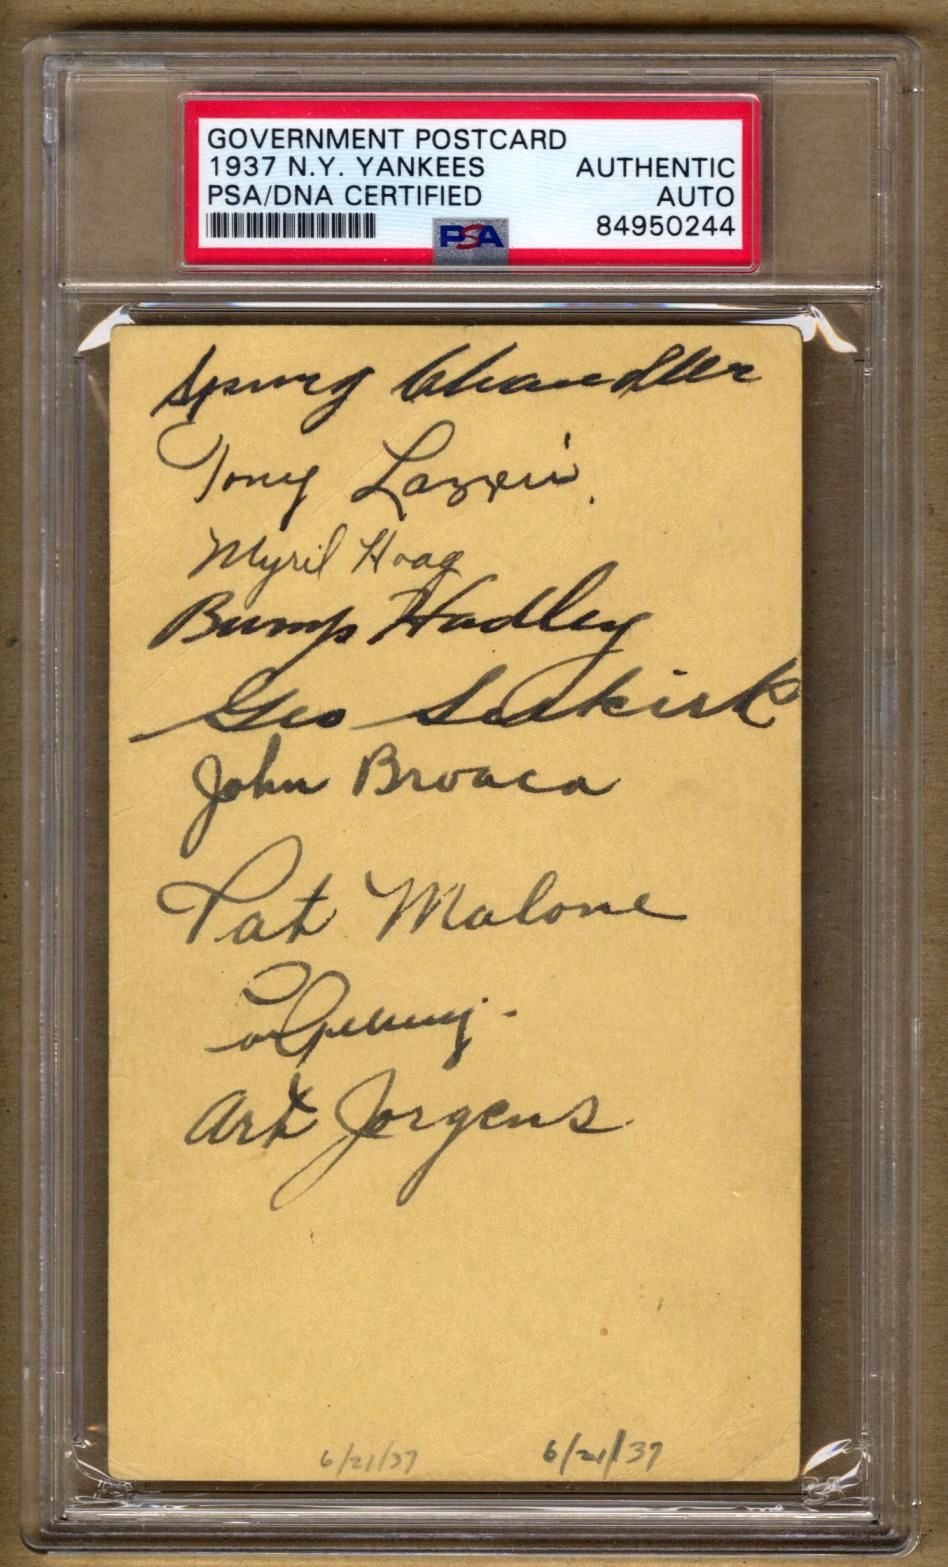 GOVERNMENT POSTCARD
1937 N.Y. YANKEES AUTHENTIC
PSA/DNA CERTIFIED AUTO
84950244
PSA
Spurg Chandler
Tony Lazzeri.
Myril Hoag
Bump Hadley
Geo Selkirk
John Broaca
Pat Malone
Art Jorgens
6/21/37 6/21/37